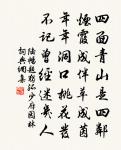 四面青山是四鄰
煙霞成伴草成茵
年年洞口桃花發
不記曾經迷幾人
陸暢題獨孤少府園林
詞典網集